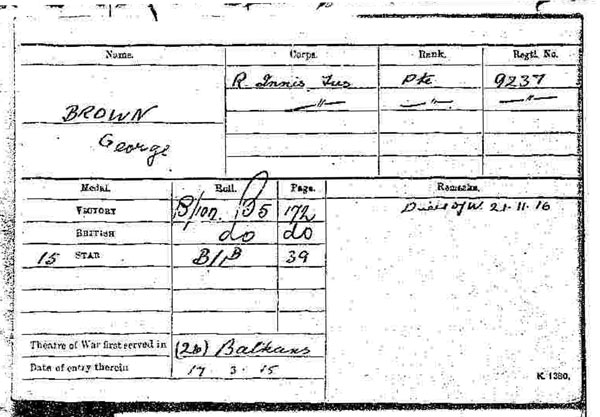 Name. Corps. Rank. Regtl. No.
R. Innis Fus Pte 9237
" " "
BROWN
George
Medal. Roll. Page. Remarks.
VICTORY B/101 B5 172 D of W. 21.11.16
BRITISH do do
15 STAR B/1B 39
Theatre of War first served in (2b) Balkans
Date of entry therein 17 3. 15
K. 1380.